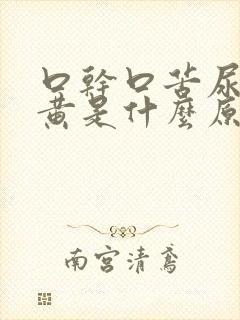 口幹口苦尿
黄是什麼原
南宫清鸢